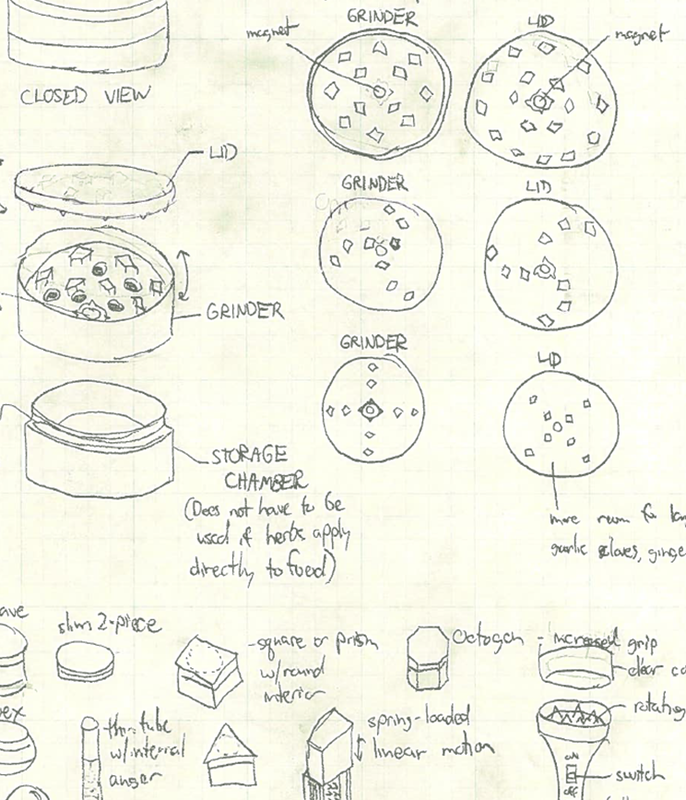 CLOSED VIEW
GRINDER
LID
magnet
magnet
LID
GRINDER
STORAGE
CHAMBER
(Does not have to be
used if herbs apply
directly to food)
GRINDER
LID
GRINDER
LID
more room for
garlic
slim 2-piece
-square or prism
w/round
interior
Octogon - increased grip
clear
thin tube
w/internal
auger
spring-loaded
linear motion
rotating
switch
on
off